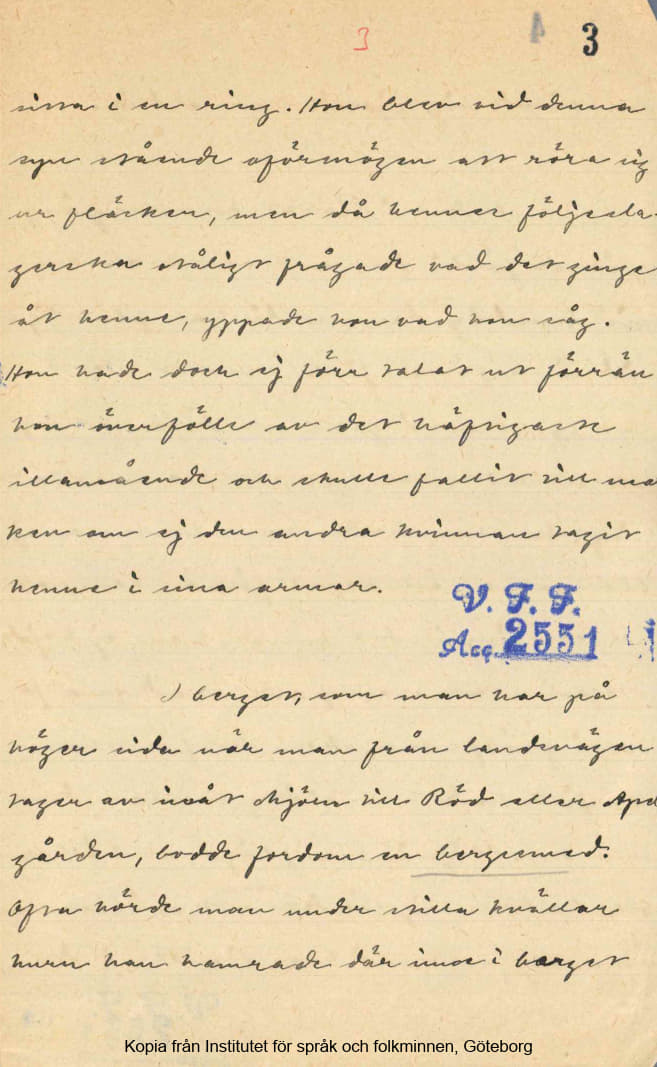 3 3
sitta i en ring. Hon blev vid denna
syn stående oförmögen att röra sig
ur fläcken, men då hennes följesla-
gerska otåligt frågade vad det ginge
åt henne, yppade hon vad hon såg.
Hon hade dock ej förr talat ut förrän
hon överfölls av det häftigaste
illamående och skulle fallit till mar
ken om ej den andra kvinnan tagit
henne i sina armar.
V. F. F.
Acc. 2551
I berget, som man har på
höger sida när man från landsvägen
tager av inåt Mjörn till Röd eller Apel
gården, bodde fordom en bergsmed.
Ofta hörde man under stilla kvällar
huru han hamrade där inne i berget
Kopia från Institutet för språk och folkminnen, Göteborg